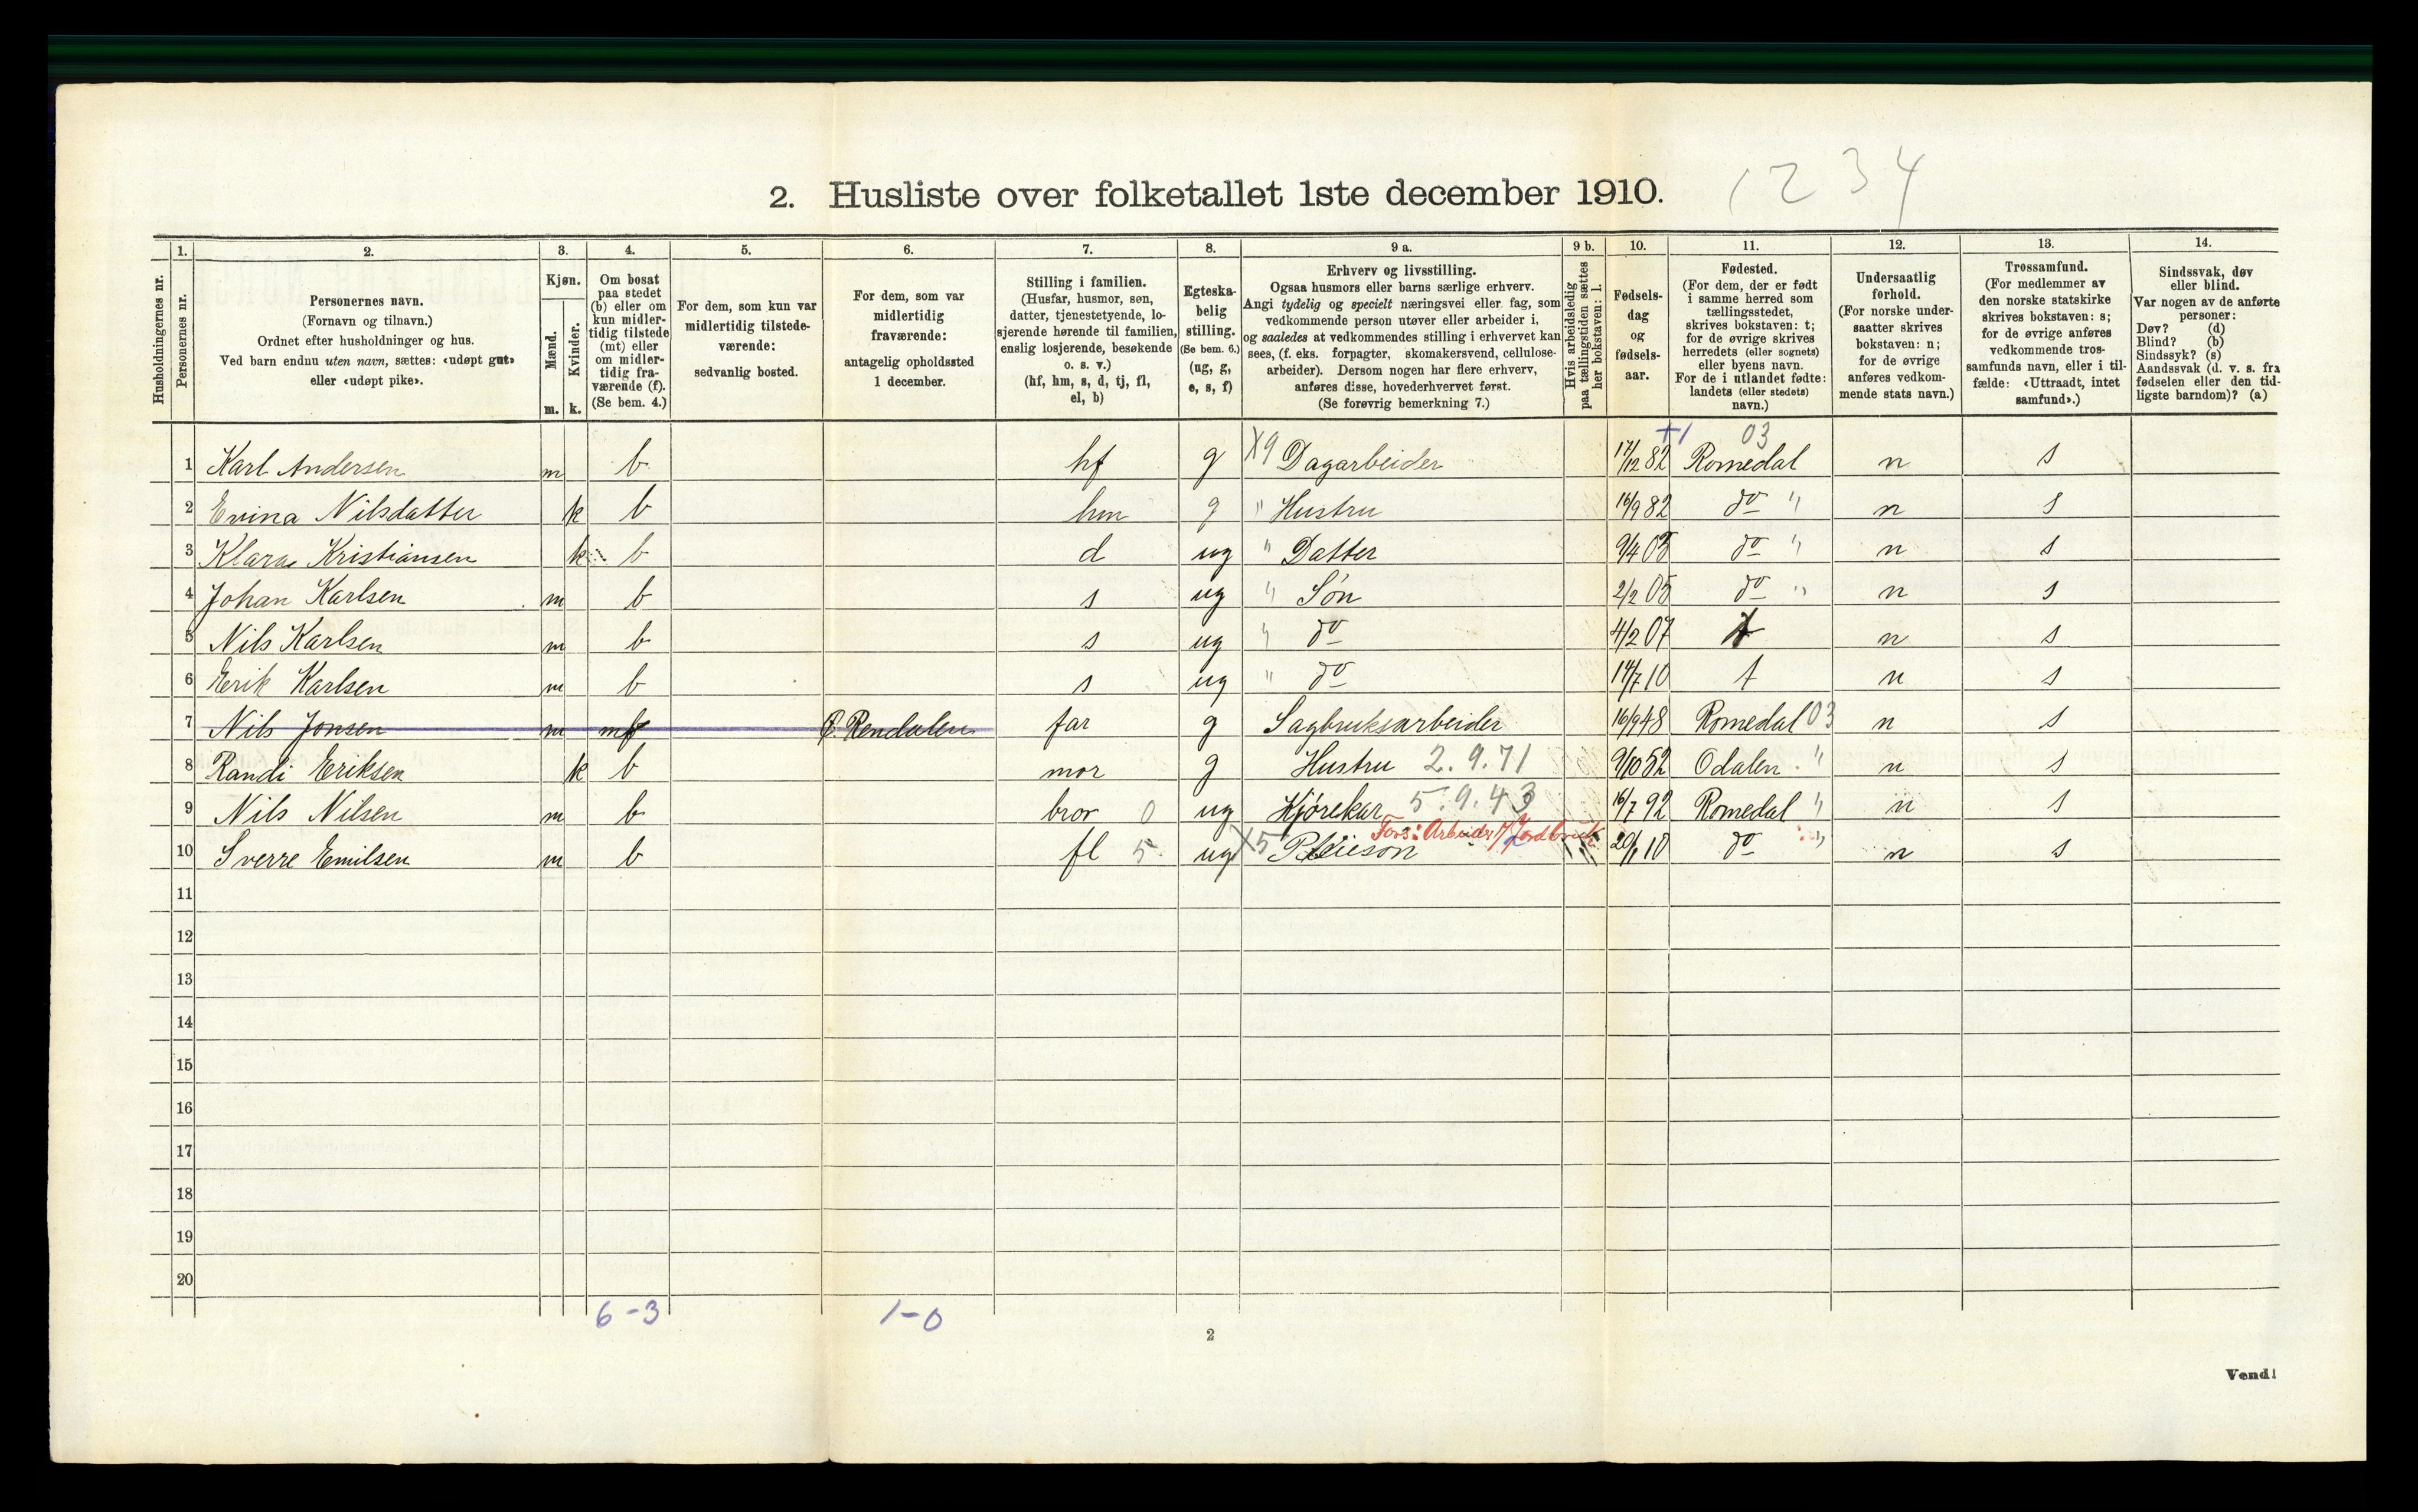 2. Husliste over folketallet 1ste december 1910. 1 2 3 4
1. 2. 3. 4. 5. 6. 7. 8. 9 a. 9 b. 10. 11. 12. 13. 14.
Husholdningernes nr.
Personernes nr.
Personernes navn.
(Fornavn og tilnavn.)
Ordnet efter husholdninger og hus.
Ved barn endnu uten navn, sættes: «udøpt gut»
eller «udøpt pike».
Kjøn.
Mænd.
Kvinder.
m. k.
Om bosat
paa stedet
(b) eller om
kun midler-
tidig tilstede
(mt) eller
om midler-
tidig fra-
værende (f).
(Se bem. 4.)
For dem, som kun var
midlertidig tilstede-
værende:
sedvanlig bosted.
For dem, som var
midlertidig
fraværende:
antagelig opholdssted
1 december.
Stilling i familien.
(Husfar, husmor, søn,
datter, tjenestetyende, lo-
sjerende hørende til familien,
enslig losjerende, besøkende
o. s. v.)
(hf, hm, s, d, tj, fl,
el, b)
Egteska-
belig
stilling.
(Se bem. 6.)
(ug, g,
e, s, f)
Erhverv og livsstilling.
Ogsaa husmors eller barns særlige erhverv.
Angi tydelig og specielt næringsvei eller fag, som
vedkommende person utøver eller arbeider i,
og saaledes at vedkommendes stilling i erhvervet kan
sees, (f. eks. forpagter, skomakersvend, cellulose-
arbeider). Dersom nogen har flere erhverv,
anføres disse, hovederhvervet først.
(Se forøvrig bemerkning 7.)
Hvis arbeidsledig
paa tællingstiden sættes
her bokstaven: l.
Fødsels-
dag
og
fødsels-
aar.
Fødested.
(For dem, der er født
i samme herred som
tællingsstedet,
skrives bokstaven: t;
for de øvrige skrives
herredets (eller sognets)
eller byens navn.
For de i utlandet fødte:
landets (eller stedets)
navn.)
Undersaatlig
forhold.
(For norske under-
saatter skrives
bokstaven: n;
for de øvrige
anføres vedkom-
mende stats navn.)
Trossamfund.
(For medlemmer av
den norske statskirke
skrives bokstaven: s;
for de øvrige anføres
vedkommende tros-
samfunds navn, eller i til-
fælde: «Uttraadt, intet
samfund».)
Sindssvak, døv
eller blind.
Var nogen av de anførte
personer:
Døv? (d)
Blind? (b)
Sindssyk? (s)
Aandssvak (d. v. s. fra
fødselen eller den tid-
ligste barndom)? (a)
+1 03
1 Karl Andersen m b hf g X9 Dagarbeider 17/12 82 Romedal n s
2 Evina Nilsdatter k b hm g " Hustru 16/9 82 do " n s
3 Klara Kristiansen k b d ug " Datter 9/4 03 do " n s
4 Johan Karlsen m b s ug " Søn 2/2 05 do " n s
5 Nils Karlsen m b s ug " do 4/2 07 t n s
6 Erik Karlsen m b s ug " do 14/7 10 t n s
7 Nils Jonsen m Ø. Rendalen far g Sagbruksarbeider 16/9 48 Romedal 03 n s
8 Randi Eriksen k b mor g Hustru 2.9.71 9/10 52 Odalen " n s
9 Nils Nilsen m b bror 0 ug Kjørekar 5.9.43 16/7 92 Romedal " n s
Fors: Arbeider v/ Jordbruk
10 Sverre Emilsen m b fl 5 ug X5 Pleiesøn 20/1 10 do " n s
11
12
13
14
15
16
17
18
19
20
6-3 1-0
2
Vend!